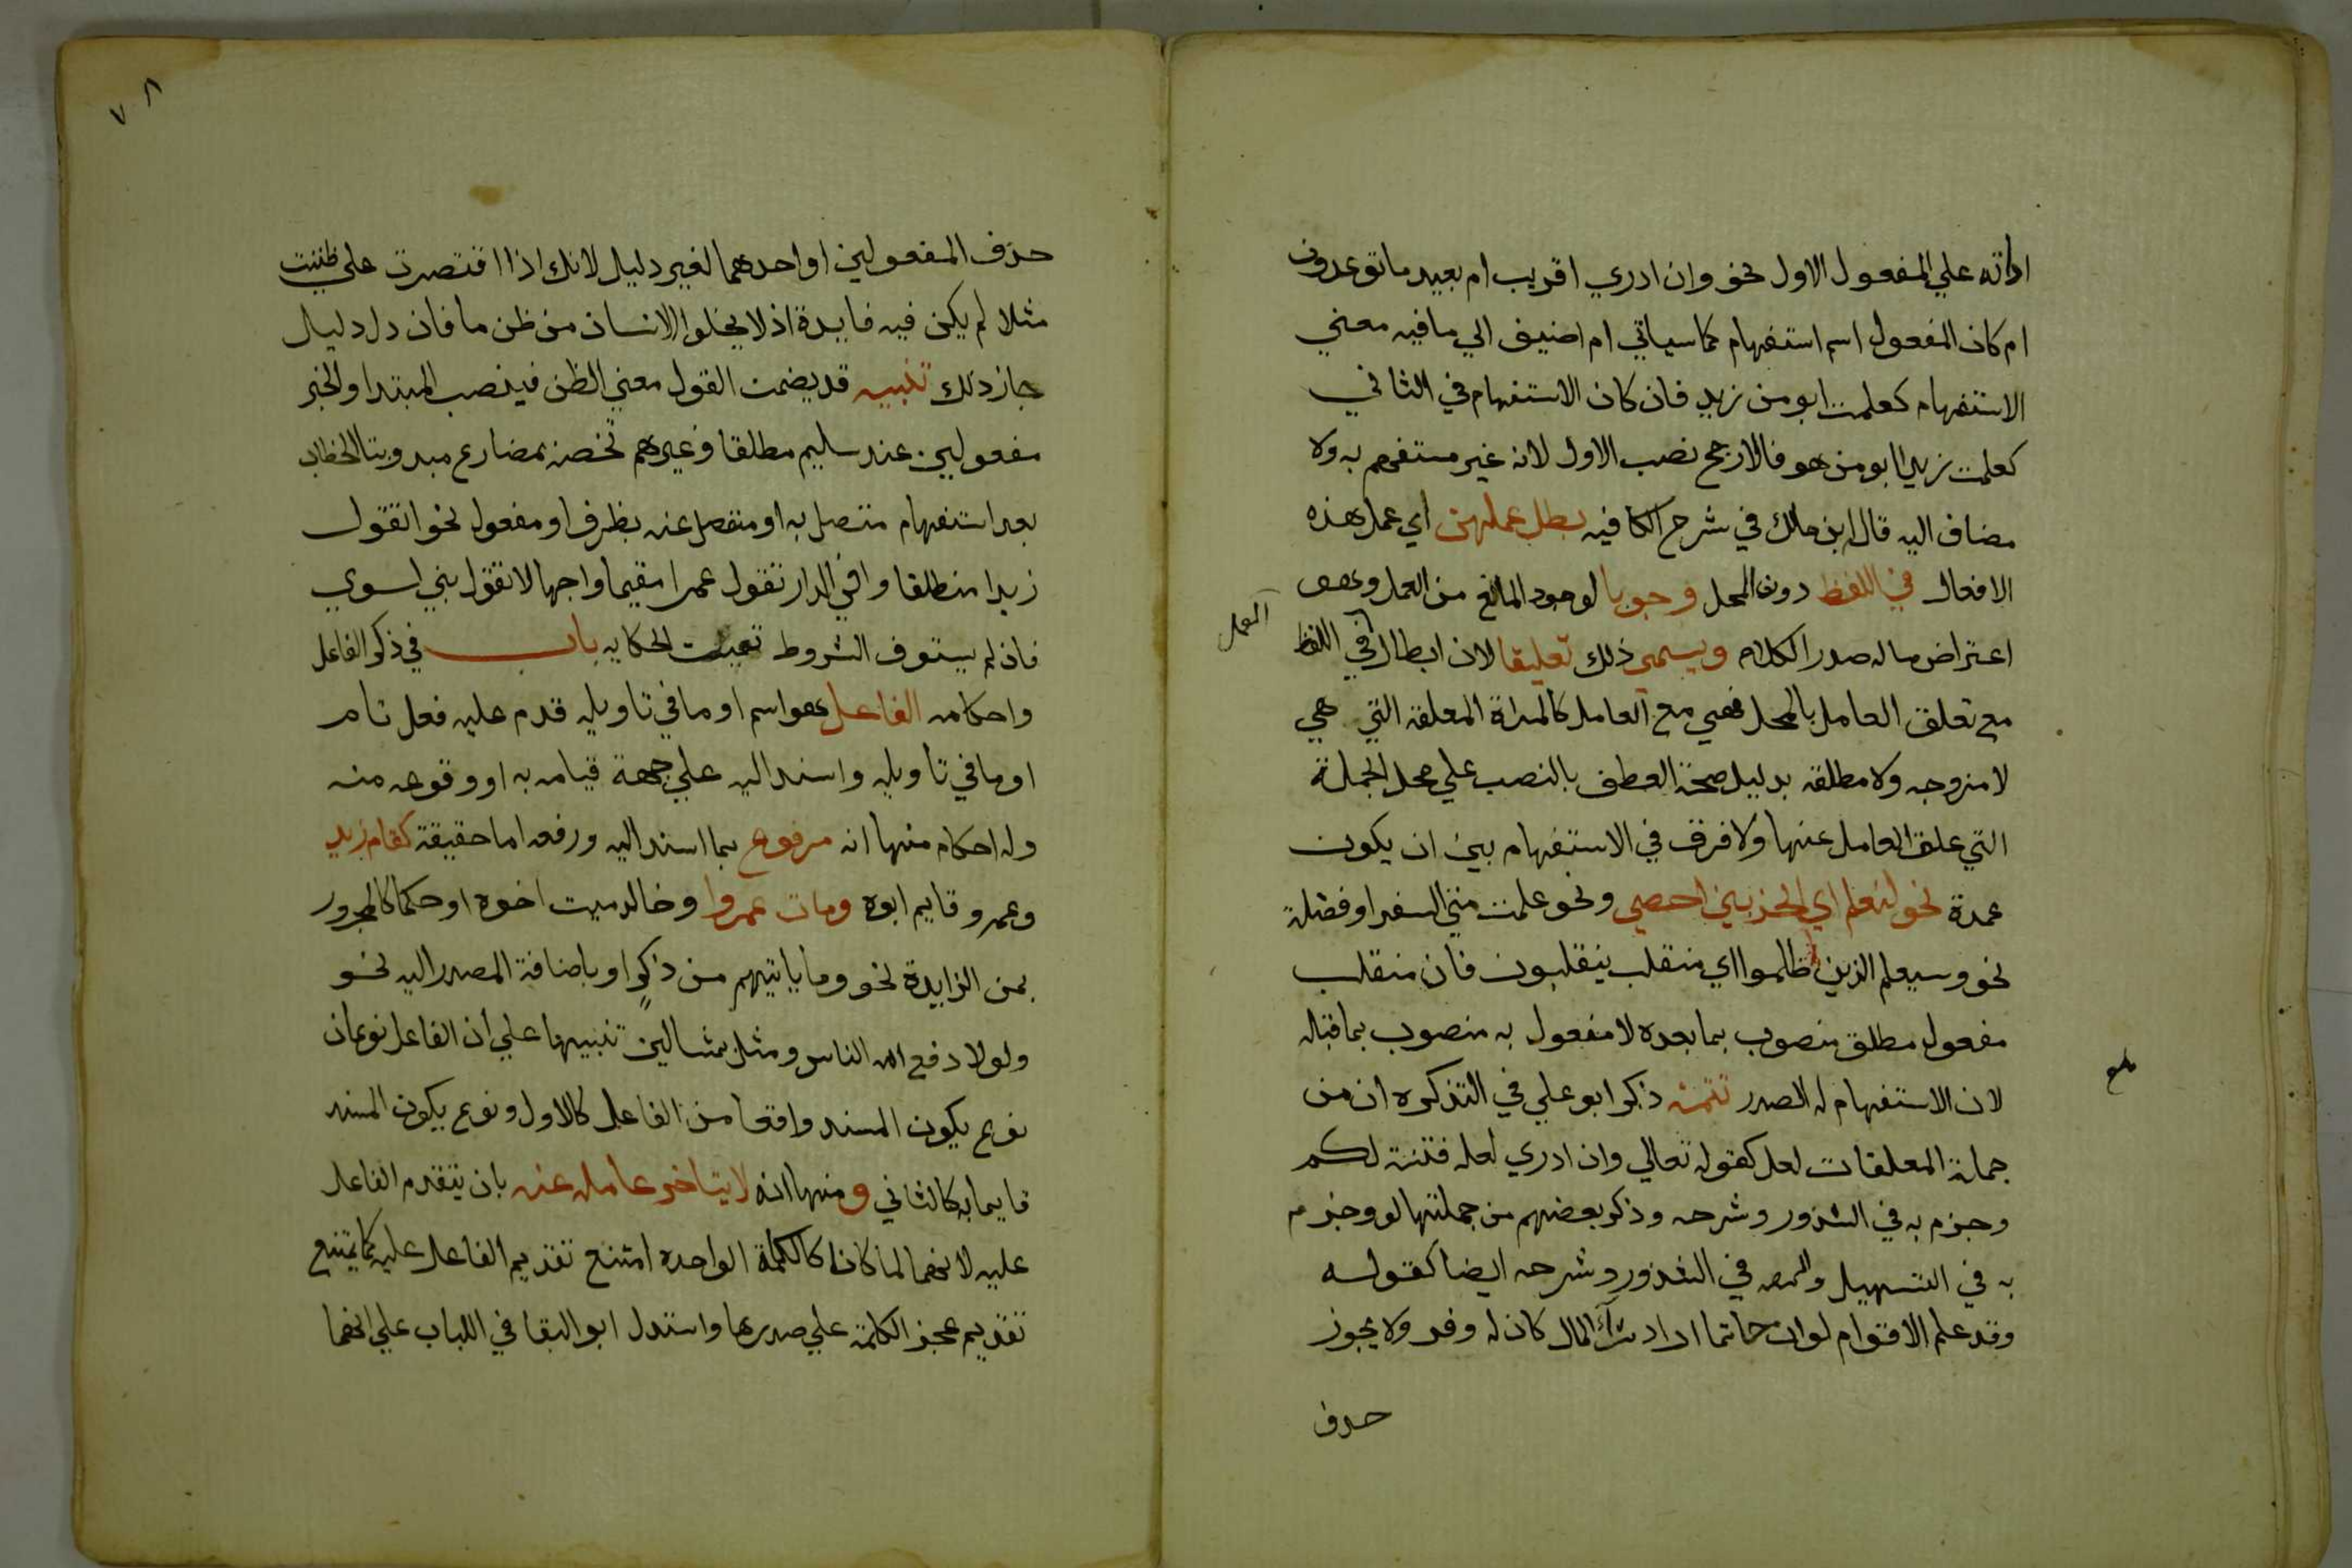 اداته علي المفعول الاول نحو وان ادري اقريب ام بعيد ما توعدون
ام كان المفعول اسم استفهام كما سياتي ام اضيف الي ما فيه معني
الاستفهام كعلمت ابو من زيد فان كان الاستفهام في الثاني
كعلمت زيدا ابو من هو فالارجح نصب الاول لانه غير مستفهم به ولا
مضاف اليه قال ابن مالك في شرح الكافيه بطل عملهن اي عمل هذه
الافعال في اللفظ دون المحل وجوبا لوجود المانع من العمل وهو
اعتراض ما له صدر الكلام ويسمى ذلك تعليقا لان ابطال في اللفظ
العمل
مع تعلق العامل بالمحل فهي مع العامل كالمراة المعلقه التي هي
لا مزوجه ولا مطلقه بدليل صحة العطف بالنصب علي محل الجملة
التي علق العامل عنها ولا فرق في الاستفهام بين ان يكون
عمدة نحو لنعلم اي الحزبين احصي ونحو علمت متي السفر او فضلة
نحو وسيعلم الذين ظلموا اي منقلب ينقلبون فان منقلب
مفعول مطلق منصوب بما بعده لا مفعول به منصوب بما قبله
لان الاستفهام له الصدر تتمة ذكر ابو علي في التذكره ان من
جملة المعلقات لعل كقوله تعالي وان ادري لعله فتنة لكم
وجزم به في الشذور وشرحه وذكر بعضهم من جملتها لو وجزم
به في التسهيل في الشذور وشرحه ايضا كقوله
وقد علم الاقوام لو ان حاتما اراد ثراء المال كان له وفر ولا يجوز
حذف
٧ ٨
حذف المفعولين او احدهما لغير دليل لانك اذا اقتصرت علي ظننت
مثلا لم يكن فيه فايدة اذ لا يخلوا الانسان من ظن ما فان دل دليل
جاز ذلك تنبيه قد يضمن القول معني الظن فينصب المبتدا والخبر
مفعولين عند سليم مطلقا وغيرهم تخصه بمضارع مبدو بتا الخطاب
بعد استفهام متصل به او منفصل عنه بظرف او مفعول نحو اتقول
زيدا منطلقا وافي الدار تقول عمرا مقيما واجهالا تقول بني لسوي
فان لم يستوف الشروط تعينت الحكايه باب في ذكر الفاعل
واحكامه الفاعل هو اسم او ما في تاويله قدم عليه فعل تام
او ما في تاويله واسند اليه علي جهة قيامه به او وقوعه منه
وله احكام منها انه مرفوع بما اسند اليه ورفعه اما حقيقة كقام زيد
وعمرو قايم ابوه ومات عمروا وخالد ميت اخوه او حكما كالمجرور
بمن الزايدة نحو وما ياتيهم من ذكر او باضافة المصدر اليه نحو
ولولا دفع الله الناس ومثل بمثالين تنبيها علي ان الفاعل نوعان
نوع يكون المسند واقعا من الفاعل كالاول ونوع يكون المسند
قايما به كالثاني ومنها انه لا يتاخر عامله عنه بان يتقدم الفاعل
عليه لانهما لما كانا كالكلمة الواحده امتنع تقديم الفاعل عليه كما يمتنع
تقديم عجز الكلمة علي صدرها واستدل ابو البقا في اللباب علي انهما